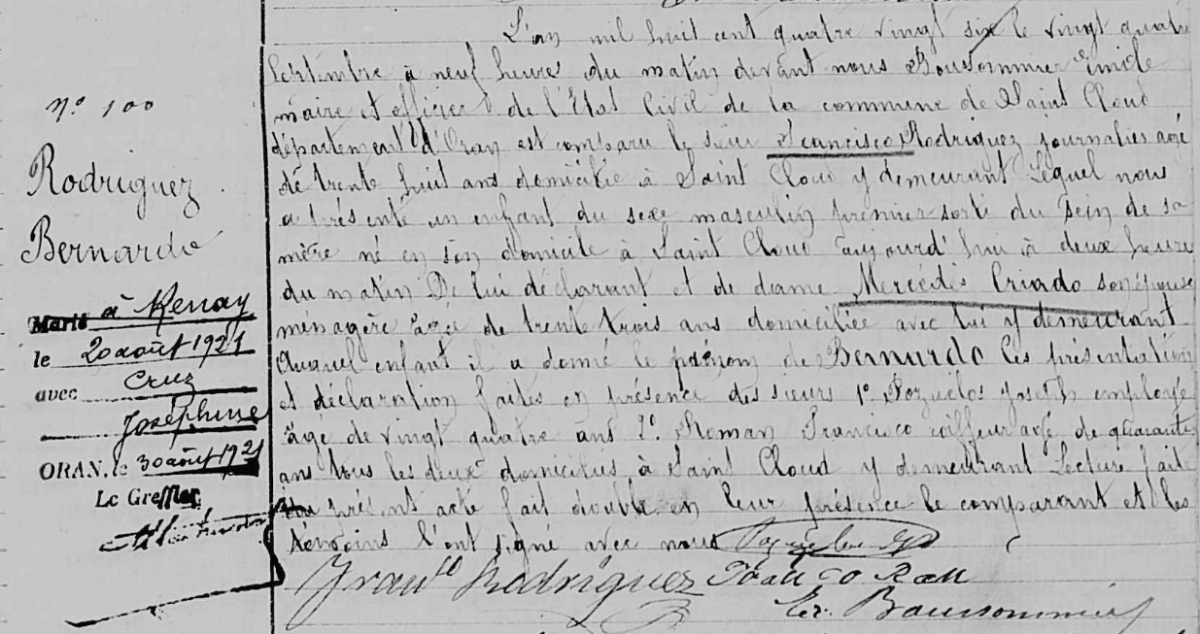 N° 100
Rodriguez
Bernardo
Marié à Renay
le 20 août 1921
avec Cruz
Joséphine
ORAN, le 30 août 1921
Le Greffier
L'an mil huit cent quatre vingt six le vingt quatre
Septembre à neuf heures du matin devant nous Boussommier Emile
maire et officier de l'Etat Civil de la commune de Saint Cloud
département d'Oran est comparu le sieur Francisco Rodriguez journalier agé
de trente huit ans domicilié à Saint Cloud y demeurant Lequel nous
a présenté un enfant du sexe masculin premier sorti du sein de sa
mère né en son domicile à Saint Cloud aujourd'hui à deux heures
du matin De lui déclarant et de dame Mercédès Criado son épouse
ménagère âgée de trente trois ans domiciliée avec lui y demeurant
Auquel enfant il a donné le prénom de Bernardo les présentation
et déclaration faites en présence des sieurs 1° Pozuelos Joseph employé
âgé de vingt quatre ans 2° Roman Francisco coiffeur agé de quarante
ans tous les deux domiciliés à Saint Cloud y demeurant Lecture faite
du présent acte fait double en leur présence le comparant et les
témoins l'ont signé avec nous
Fran^co Rodriguez
Boussommier